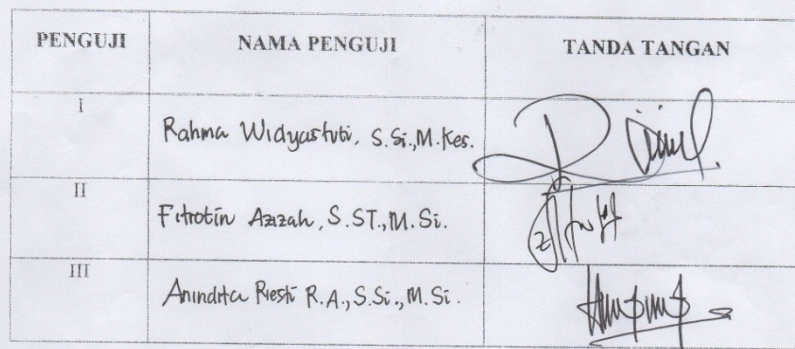 PENGUJI NAMA PENGUJI TANDA TANGAN
I Rahma Widyastuti, S.Si.,M.Kes.
II Fitrotin Azizah, S.ST.,M.Si.
III Anindita Riesti R.A.,S.Si.,M.Si.